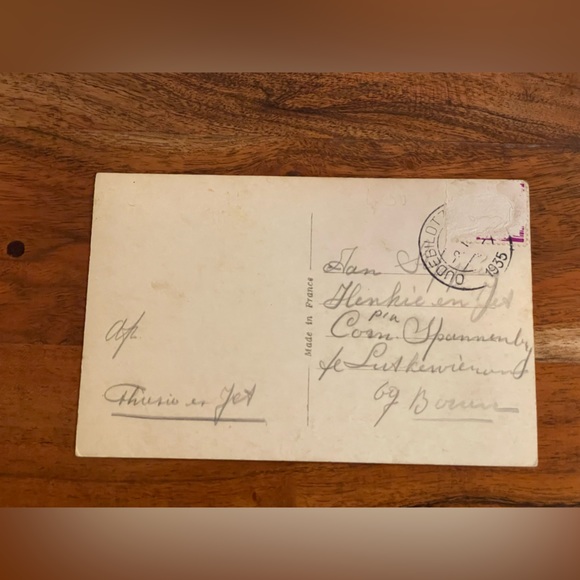 Af.
Thiesia en Jet
Made in France
OUDEBILDT
1935
Jan
Henkie en Jet
p/a
Corn. Spannenb
te Lutkewierum
bg Bozum